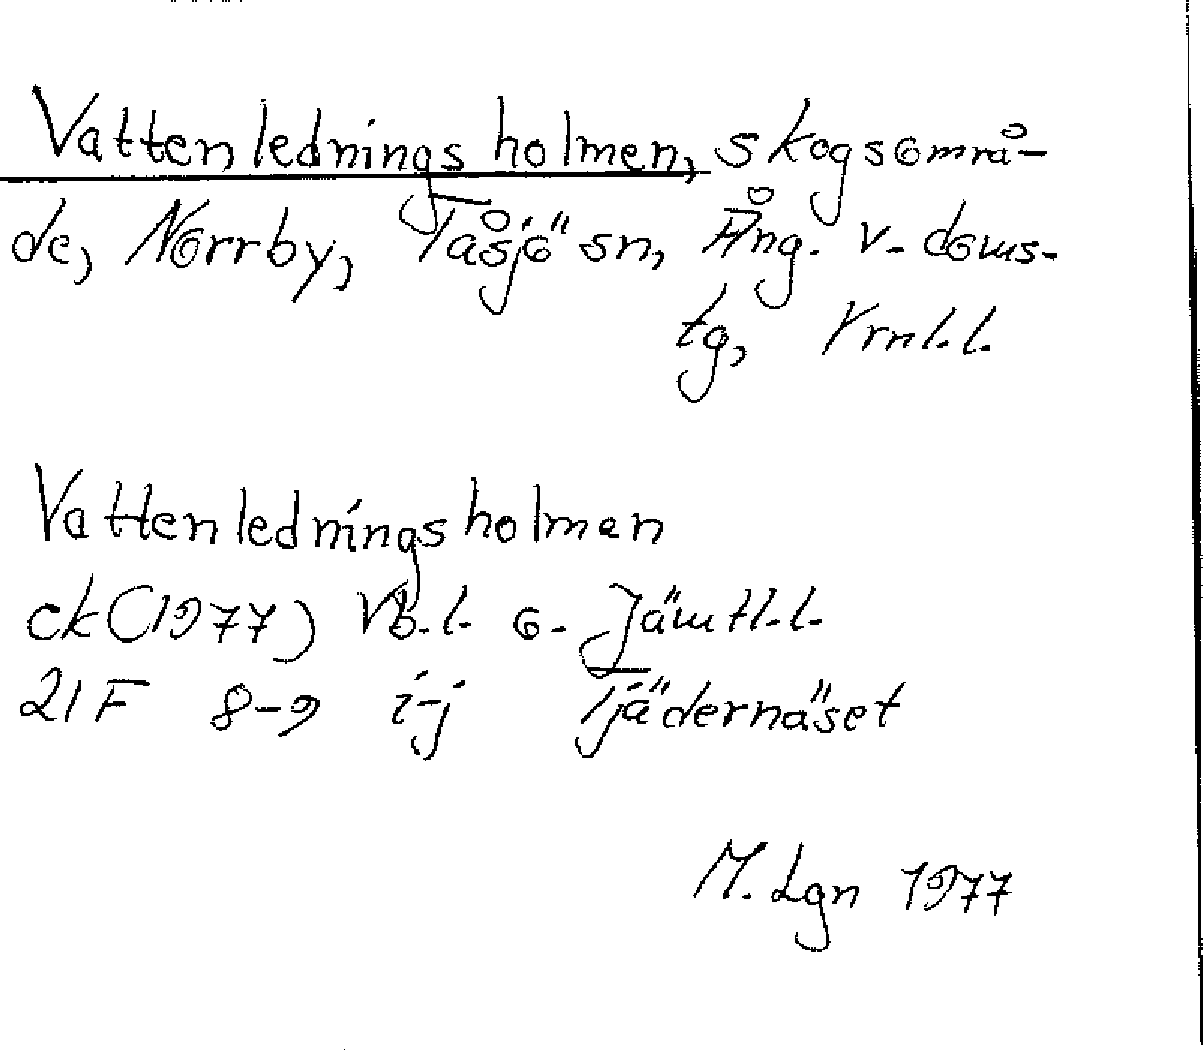 Vattenledningsholmen, skogsområ-
de, Norrby, Tåsjö sn, Ång. v. doms-
tg, Vrnl.l.
Vattenledningsholmen
ek (1977) Vb.l. o. Jämtl.l.
21F 8-9 i-j Tjädernäset
M. Lgn 1977